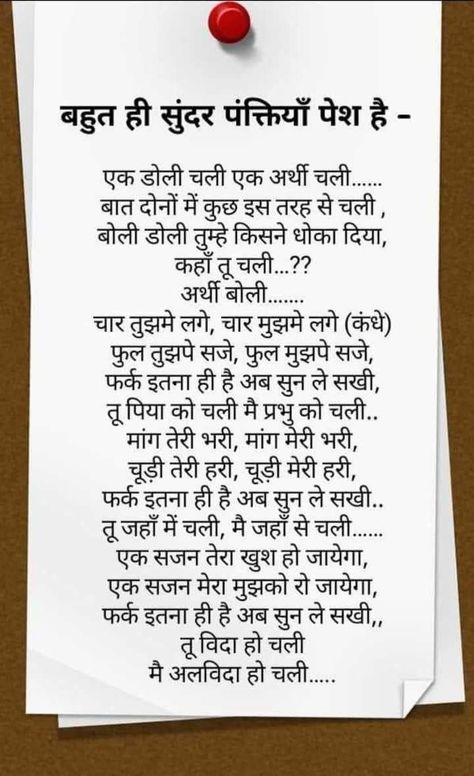 बहुत ही सुंदर पंक्तियाँ पेश है -
एक डोली चली एक अर्थी चली......
बात दोनों में कुछ इस तरह से चली ,
बोली डोली तुम्हे किसने धोका दिया,
कहाँ तू चली...??
अर्थी बोली.......
चार तुझमे लगे, चार मुझमे लगे (कंधे)
फुल तुझपे सजे, फुल मुझपे सजे,
फर्क इतना ही है अब सुन ले सखी,
तू पिया को चली मै प्रभु को चली..
मांग तेरी भरी, मांग मेरी भरी,
चूड़ी तेरी हरी, चूड़ी मेरी हरी,
फर्क इतना ही है अब सुन ले सखी..
तू जहाँ में चली, मै जहाँ से चली......
एक सजन तेरा खुश हो जायेगा,
एक सजन मेरा मुझको रो जायेगा,
फर्क इतना ही है अब सुन ले सखी,,
तू विदा हो चली
मै अलविदा हो चली.....